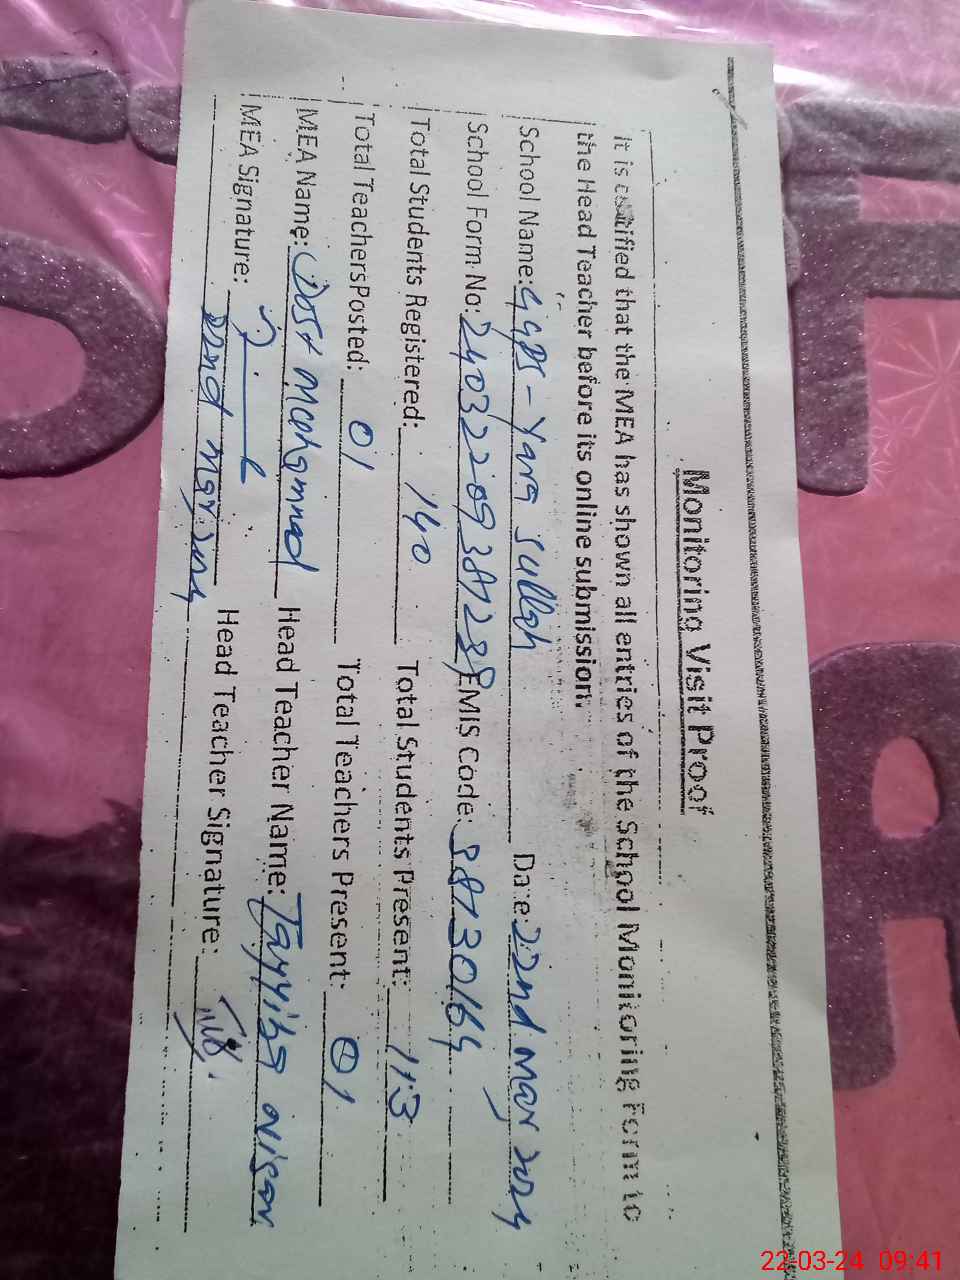 Monitoring Visit Proof
It is certified that the MEA has shown all entries of the School Monitoring Form to
the Head Teacher before its online submission.
School Name: GGPS - Yara Sullah Date: 22nd Mar 2024
School Form No: 24032209387238 EMIS Code: 38730164
Total Students Registered: 140 Total Students Present: 113
Total Teachers Posted: 01 Total Teachers Present: 01
MEA Name: Dost Mohammad Head Teacher Name: Tayyiba
MEA Signature: Head Teacher Signature:
22nd Mar 2024
22-03-24 09:41